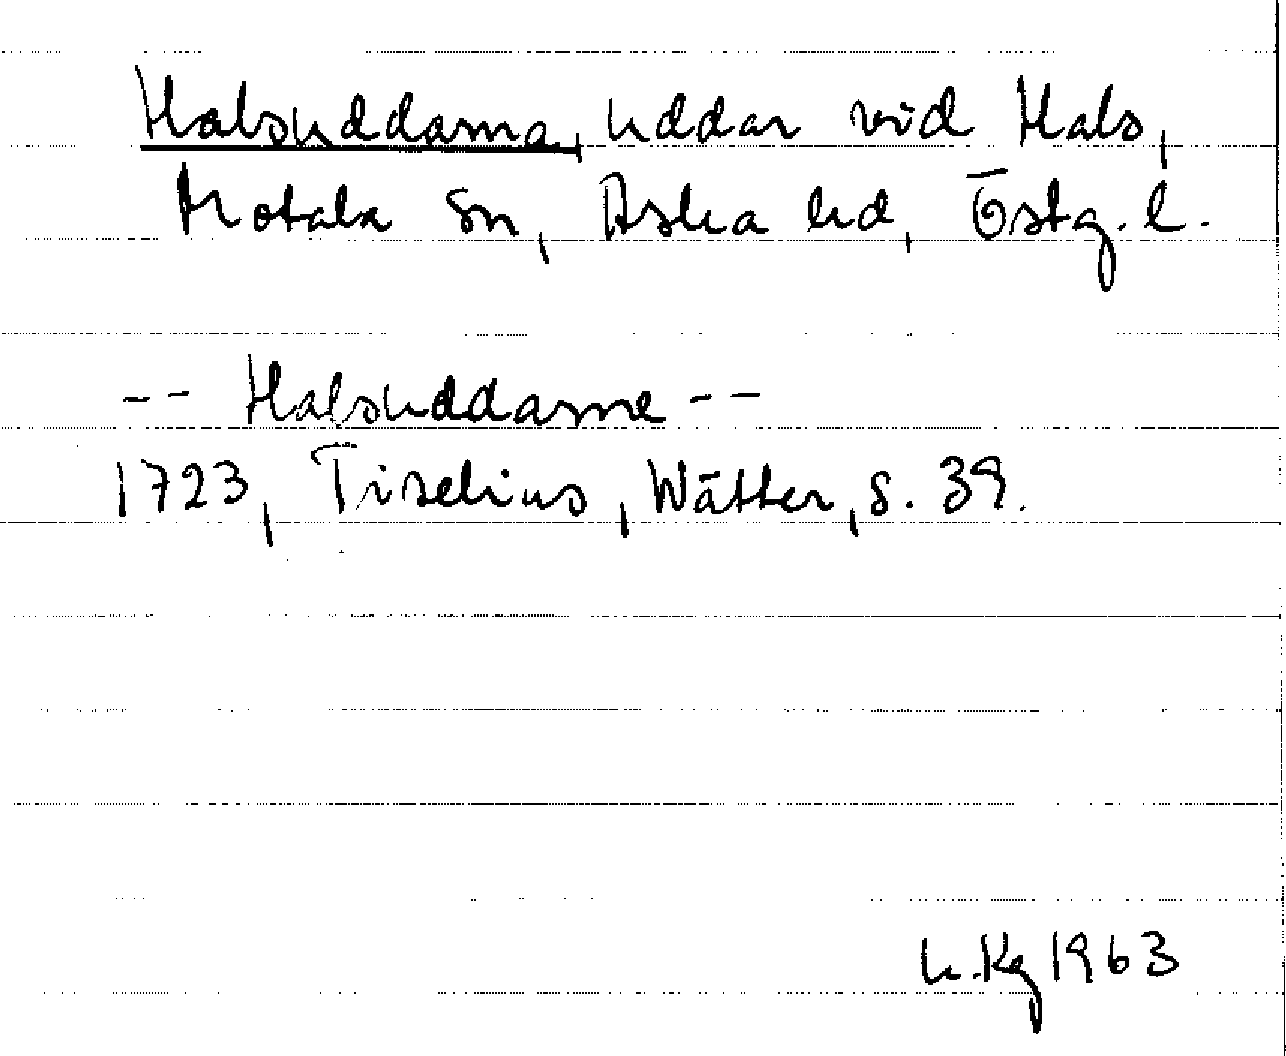 Halsuddarna, uddar vid Hals,
Motala sn, Aska hd, Östg. l.
-- Halsuddarne --
1723, Tiselius, Wätter, s. 39.
L. Kg 1963